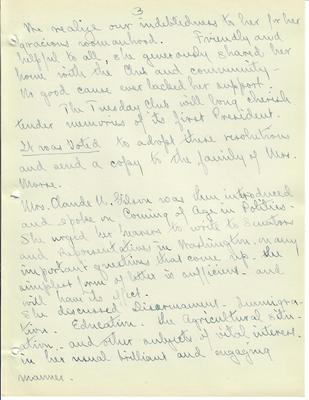 3
We realize our indebtedness to her for her
gracious womanhood. Friendly and
helpful to all, she generously shared her
home with the Club and community -
No good cause ever lacked her support.
The Tuesday Club will long cherish
tender memories of its first President.
It was Voted to adopt these resolutions
and send a copy to the family of Mrs.
Morse.
Mrs. Claude U. Gilson was then introduced
and spoke on Coming of Age in Politics.
She urged her hearers to write to Senators
and Representatives in Washington on any
important questions that come up. The
simplest form of letter is sufficient and
will have its effect.
She discussed Disarmament - Immigra-
tion - Education - the Agricultural situ-
ation - and other subjects of vital interest
in her usual brilliant and engaging
manner.